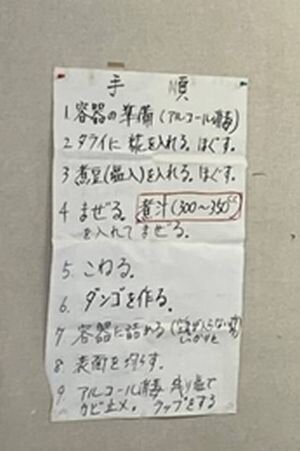 手順
1 容器の準備(アルコール消毒)
2 タライに 糀を入れる。ほぐす。
3 煮豆(塩入)を入れる。ほぐす。
4 まぜる。煮汁(300〜350cc)
を入れてまぜる。
5. こねる。
6. ダンゴを作る。
7 容器に詰める(空気が入らない様
しっかりと
8 表面を均らす。
9 アルコール消毒 残り塩で
カビ止メ。ラップをする